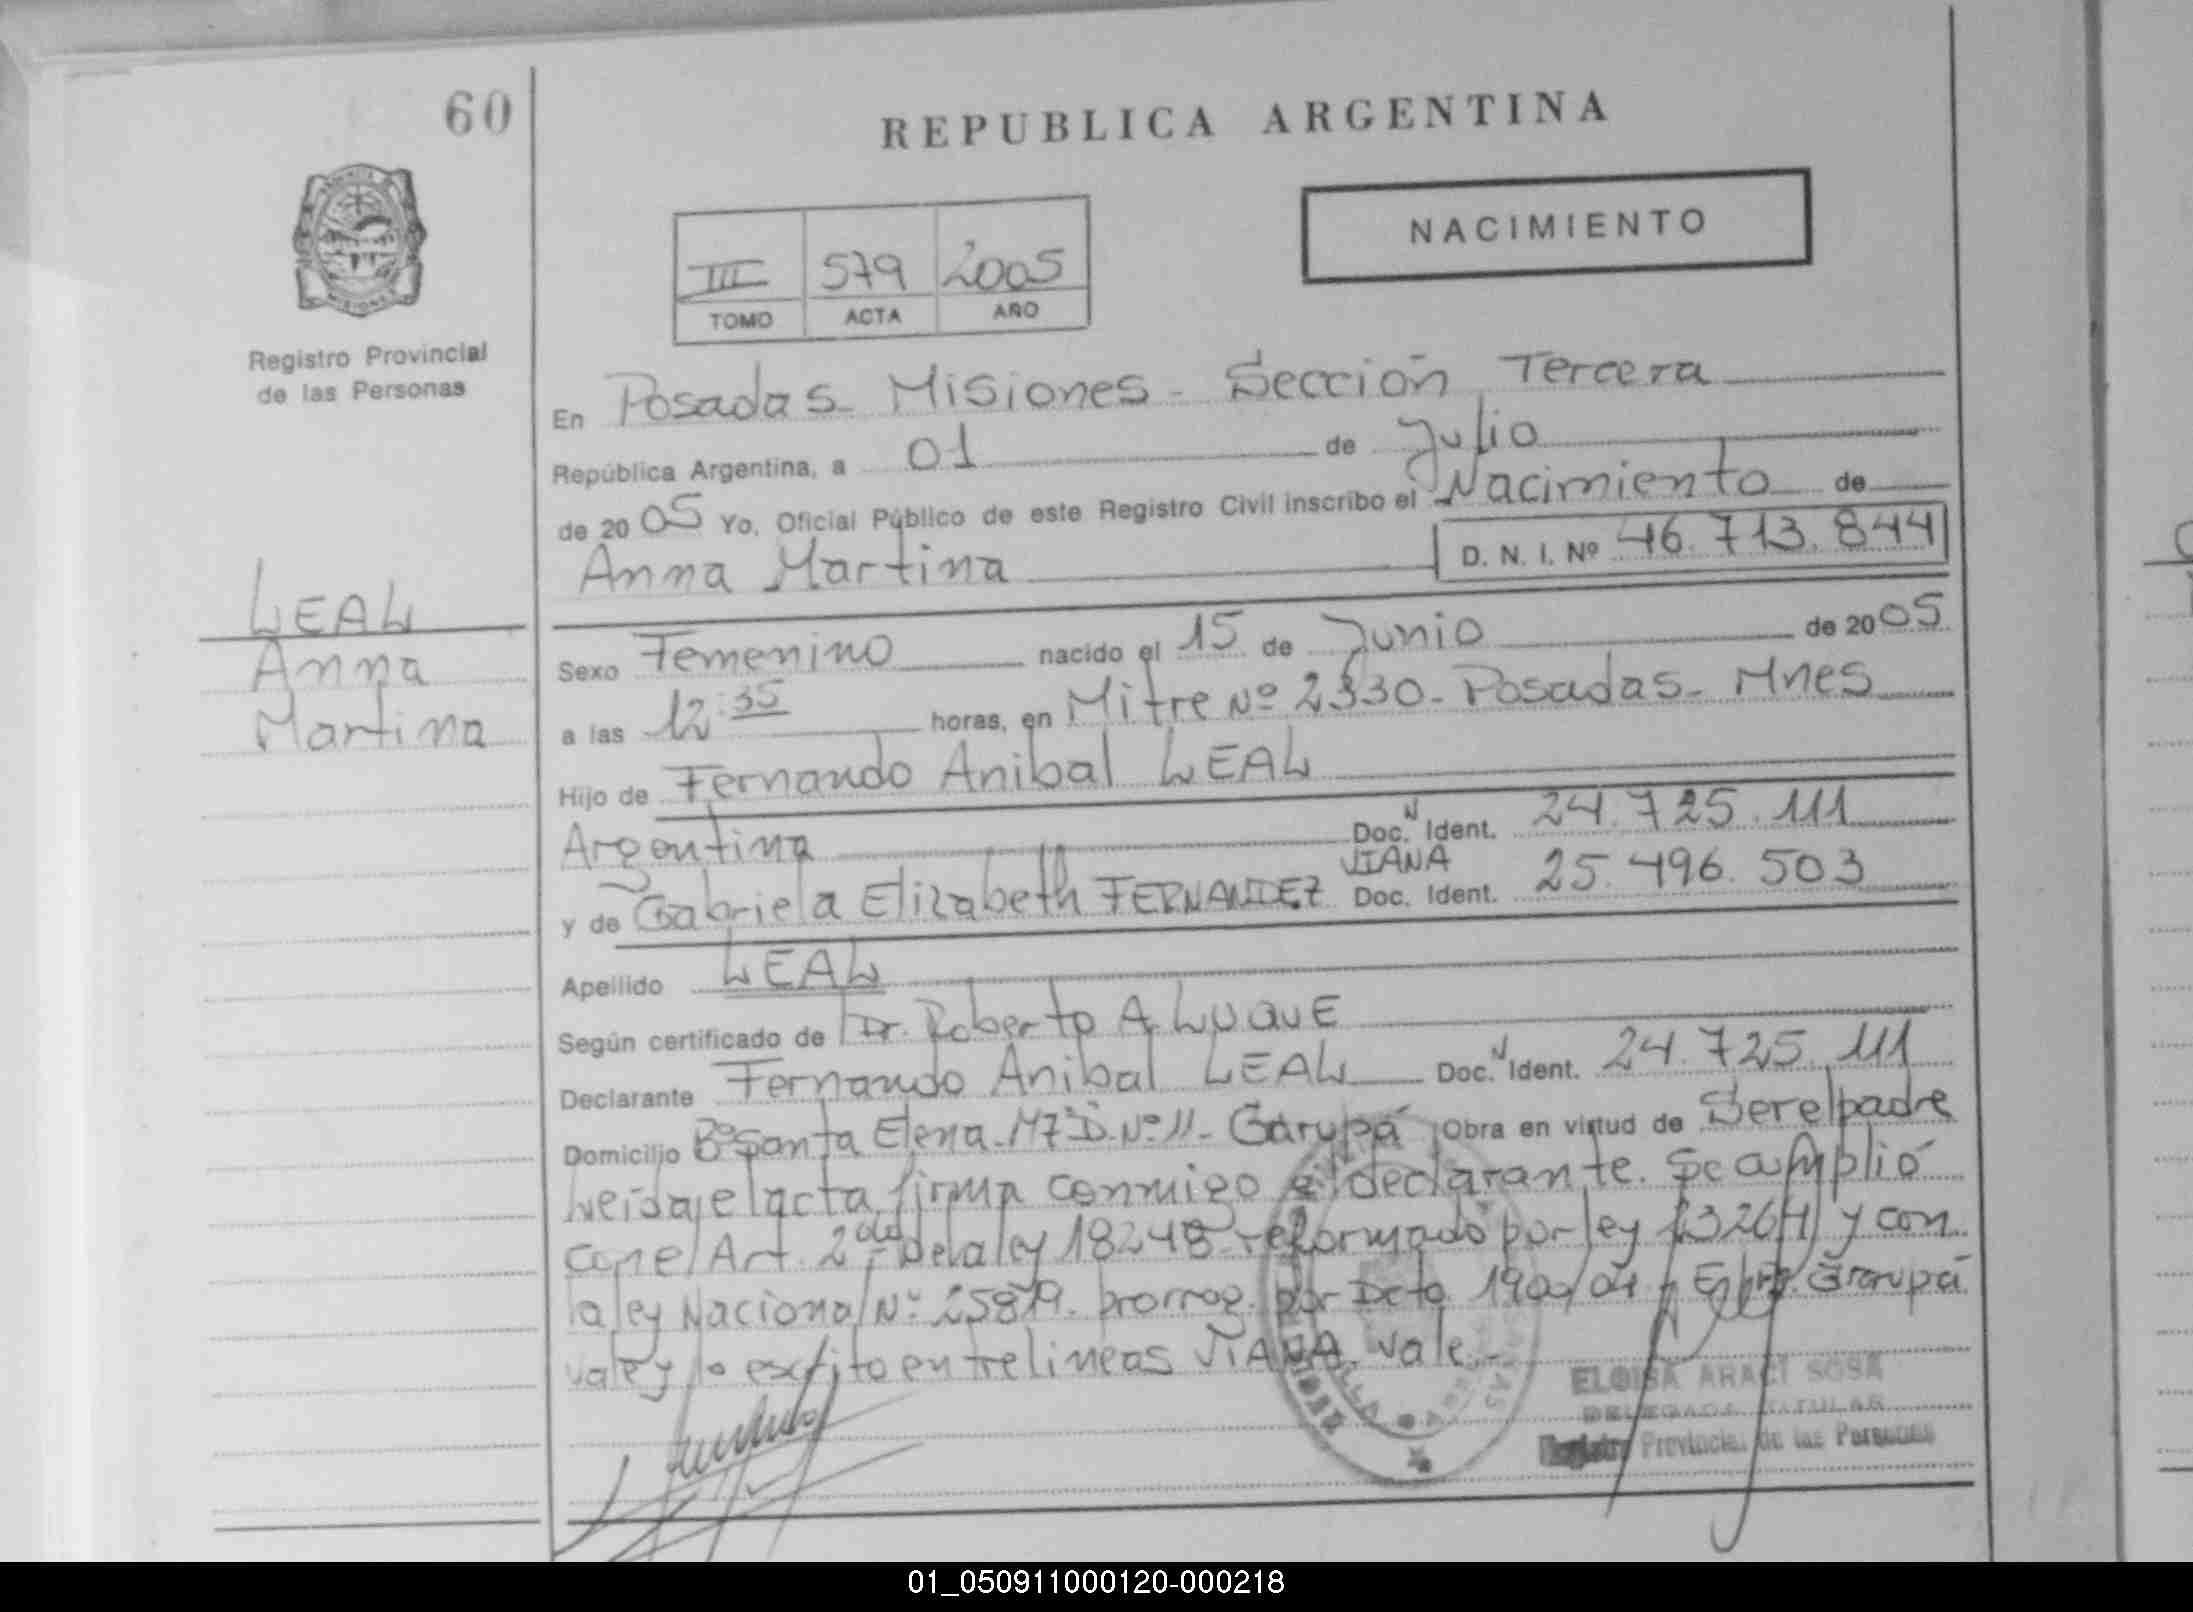 60
REPUBLICA ARGENTINA
NACIMIENTO
III 579 2005
TOMO ACTA AÑO
Registro Provincial
de las Personas
En Posadas - Misiones - Sección Tercera
República Argentina, a 01 de Julio
de 2005 Yo, Oficial Público de este Registro Civil inscribo el Nacimiento de
Anna Martina D. N. I. Nº 46.713.844
LEAL
Anna
Martina
Sexo Femenino nacido el 15 de Junio de 2005
a las 12:35 horas, en Mitre Nº 2330 - Posadas - Mnes
Hijo de Fernando Anibal LEAL
Argentina Doc. N Ident. 24.725.111
VIANA
y de Gabriela Elizabeth FERNANDEZ Doc. Ident. 25.496.503
Apellido LEAL
Según certificado de Dr. Roberto A. LUQUE
Declarante Fernando Anibal LEAL Doc. N Ident. 24.725.111
Domicilio Bº Santa Elena - M7 D. Nº 11 - Garupá Obra en virtud de Ser el padre
Leida el acta, firma conmigo el declarante. Se amplió
con el Art. 2do de la ley 18248 reformado por ley 23264 y con
la ley Nacional Nº 25819. prorrog. por Dcto. 1900/04 Garupá
vale y lo escrito entrelineas VIANA. Vale.-
ELOISA ARACI SOSA
DELEGADA TITULAR
Registro Provincial de las Personas
01_050911000120-000218